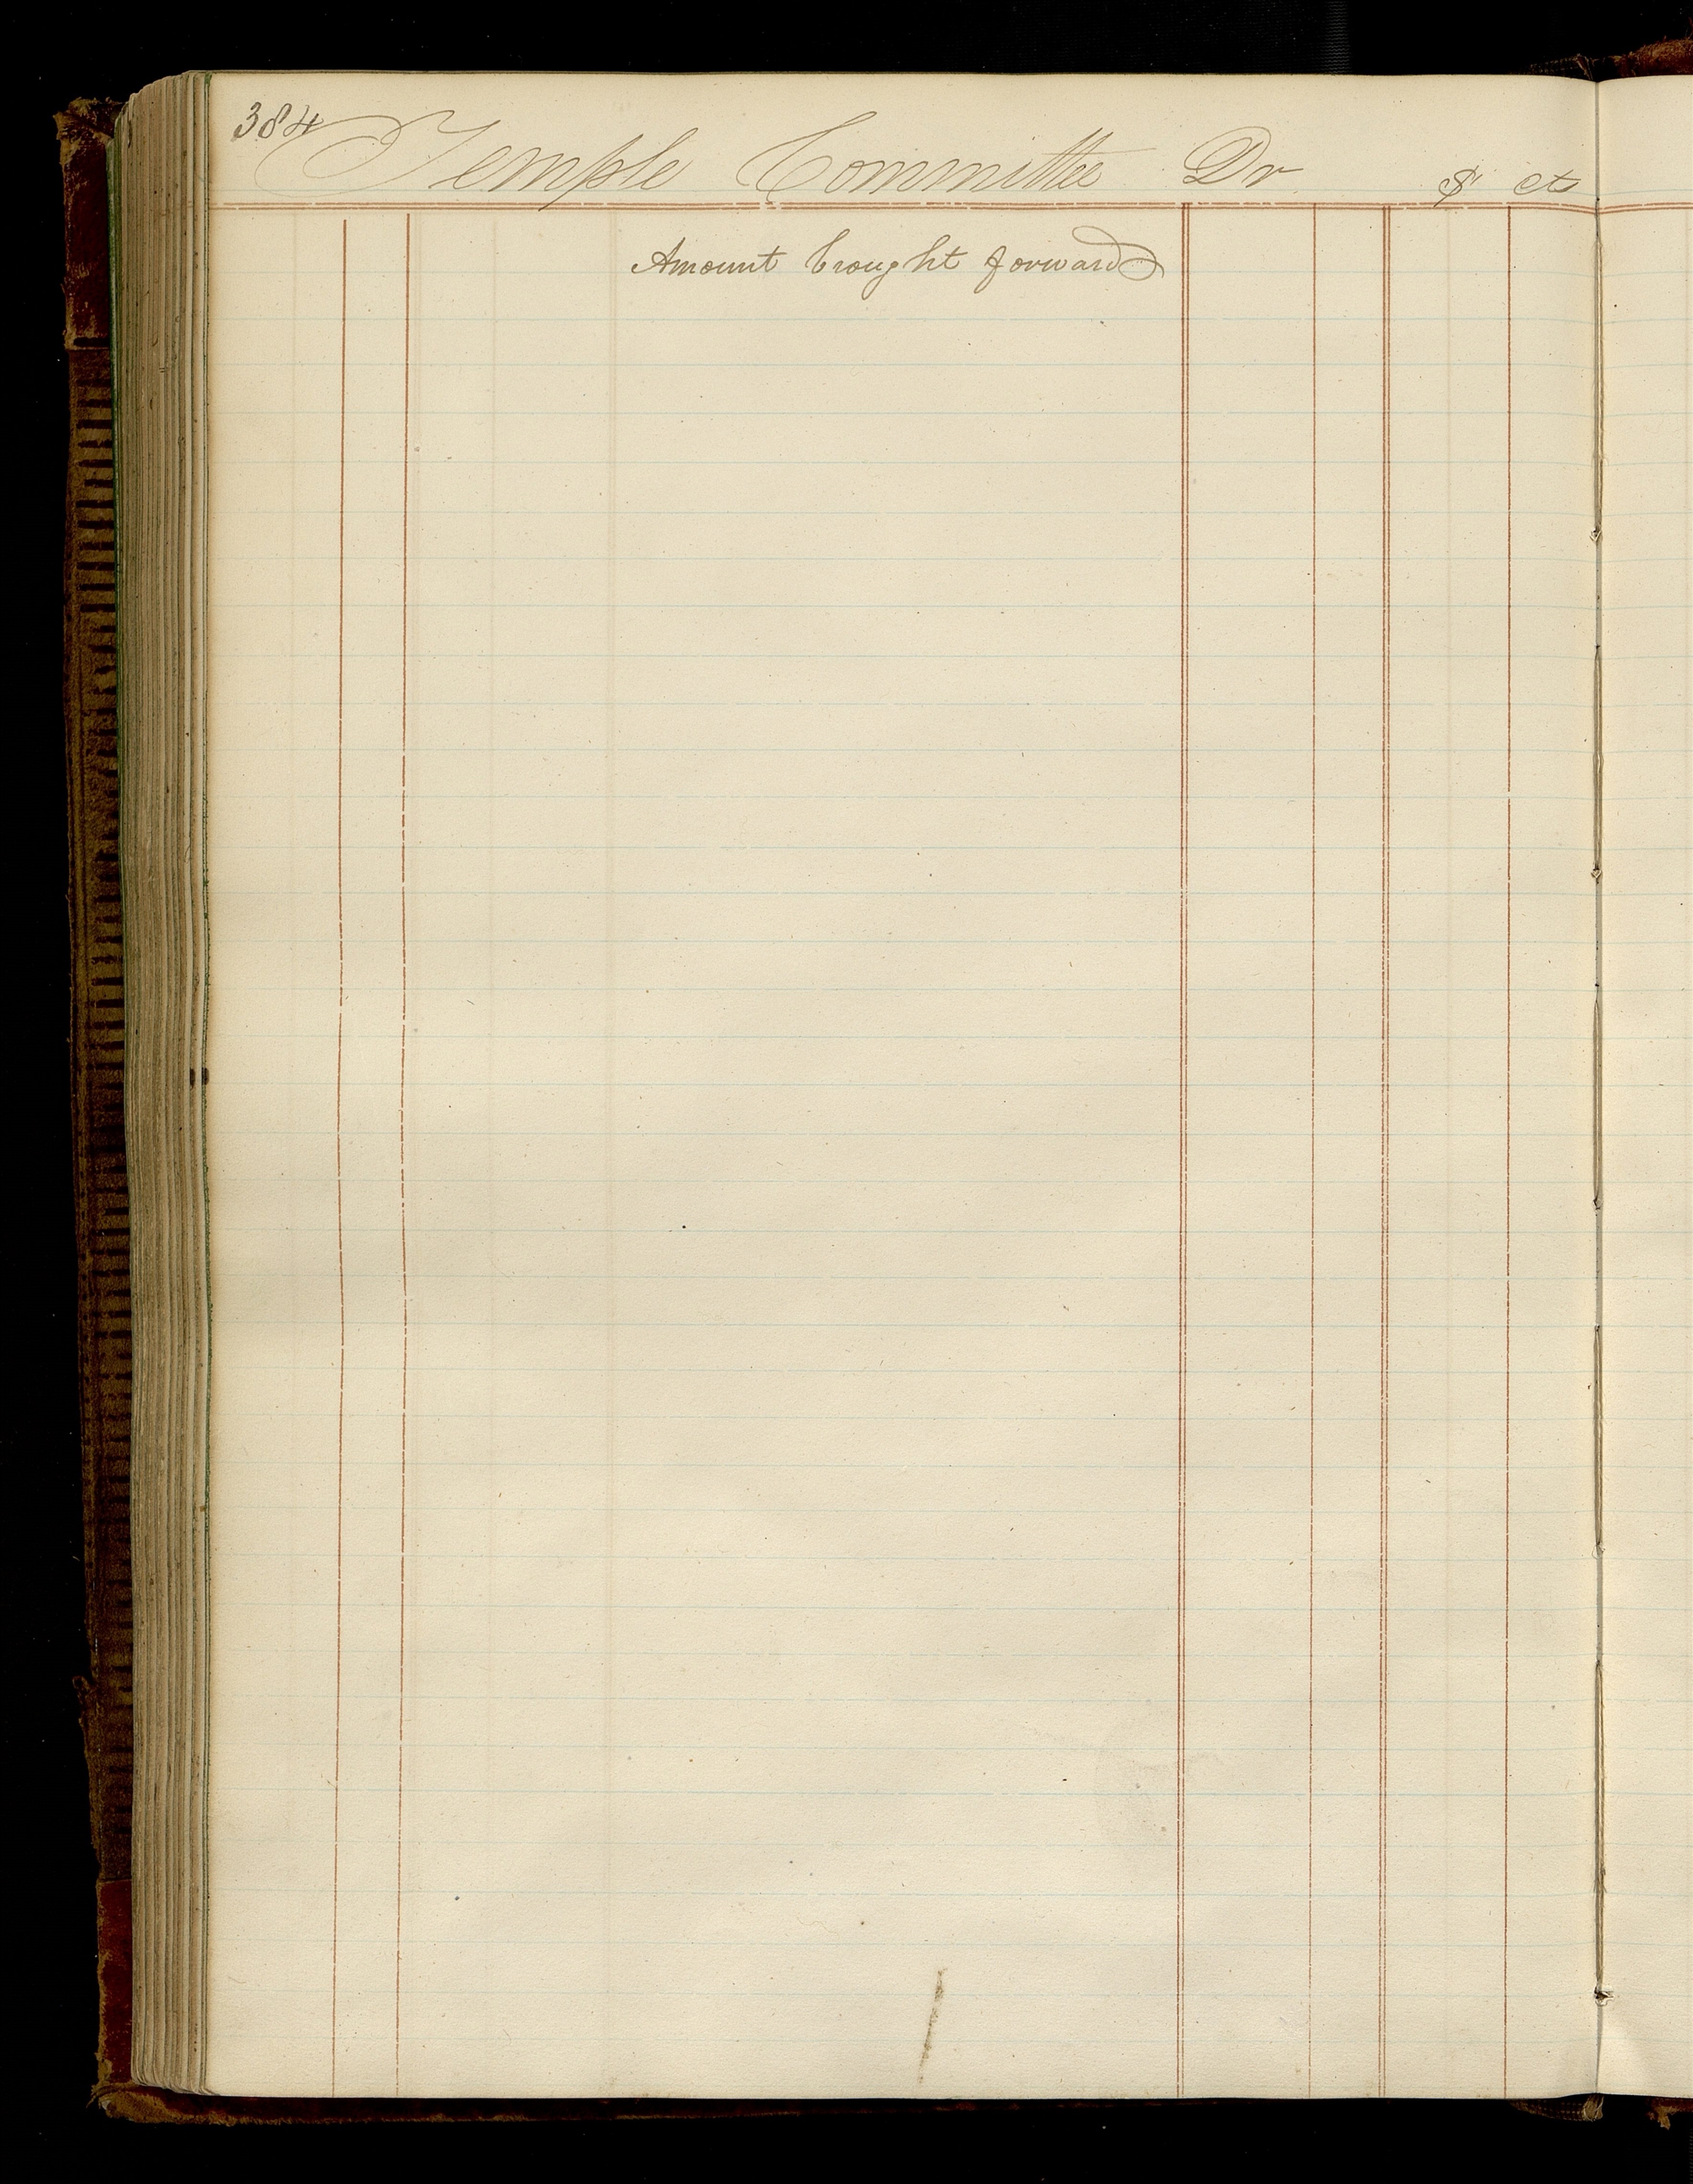 384
Temple Committee Dr $ cts
Amount brought forward